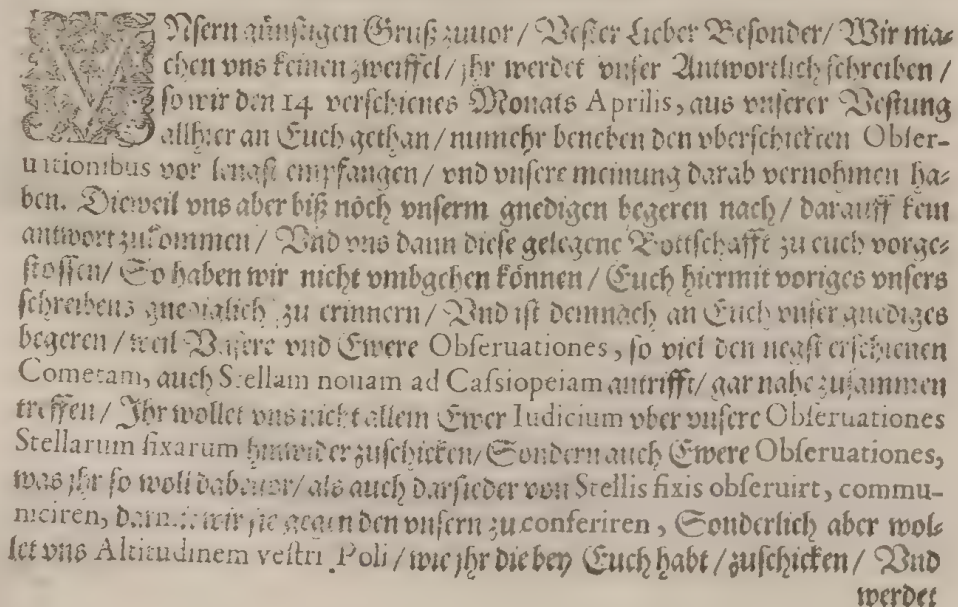 VNsern günstigen Gruß zuuor / Vester Lieber Besonder / Wir ma-
chen vns keinen zweiffel / jhr werdet vnser Antwortlich schreiben /
so wir den 14 verschienes Monats Aprilis, aus vnserer Vestung
allhier an Euch gethan / numehr beneben den vberschickten Obser-
uationibus vor lengst empfangen / vnd vnsere meinung darab vernohmen ha-
ben. Dieweil vns aber biß noch vnserm gnedigen begeren nach / darauff kein
antwort zukommen / Vnd vns dann diese gelegene Bottschafft zu euch vorge-
stossen / So haben wir nicht vmbgehen können / Euch hiermit voriges vnsers
schreibens gnediglich zu erinnern / Vnd ist demnach an Euch vnser gnediges
begeren / weil Vnsere vnd Ewere Obseruationes, so viel den negst erschienen
Cometam, auch Stellam nouam ad Cassiopeiam antrifft / gar nahe zusammen
treffen / Jhr wollet vns nicht allein Ewer Iudicium vber vnsere Obseruationes
Stellarum fixarum hinwider zuschicken / Sondern auch Ewere Obseruationes,
was jhr so woll dabeuor / als auch darsieder von Stellis fixis obseruirt, commu-
niciren, damit wir sie gegen den vnsern zu conferiren, Sonderlich aber wol-
let vns Altitudinem vestri Poli / wie jhr die bey Euch habt / zuschicken / Vnd
werdet